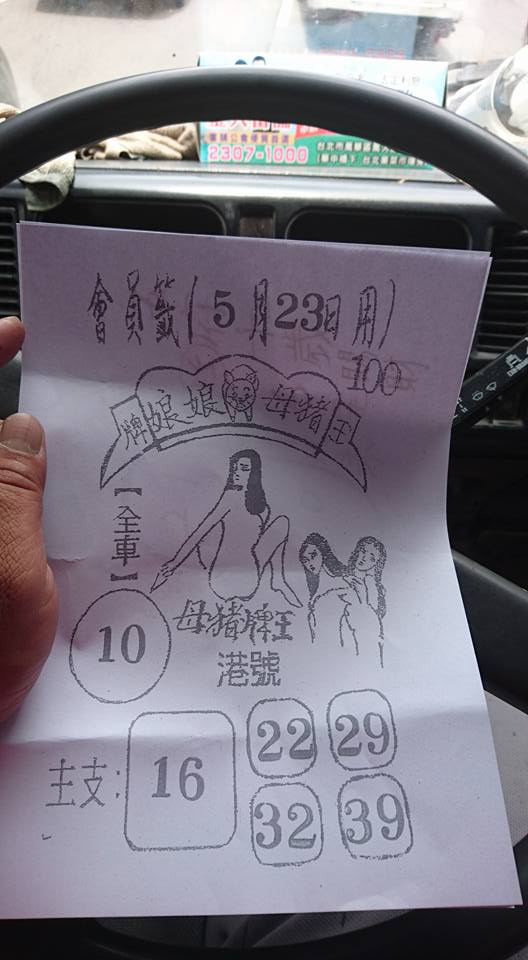 2307-1000
會員籤(5月23日用)
100
牌娘娘 母豬王
【全車】
10
母豬牌王
港號
主支:
16
22
29
32
39